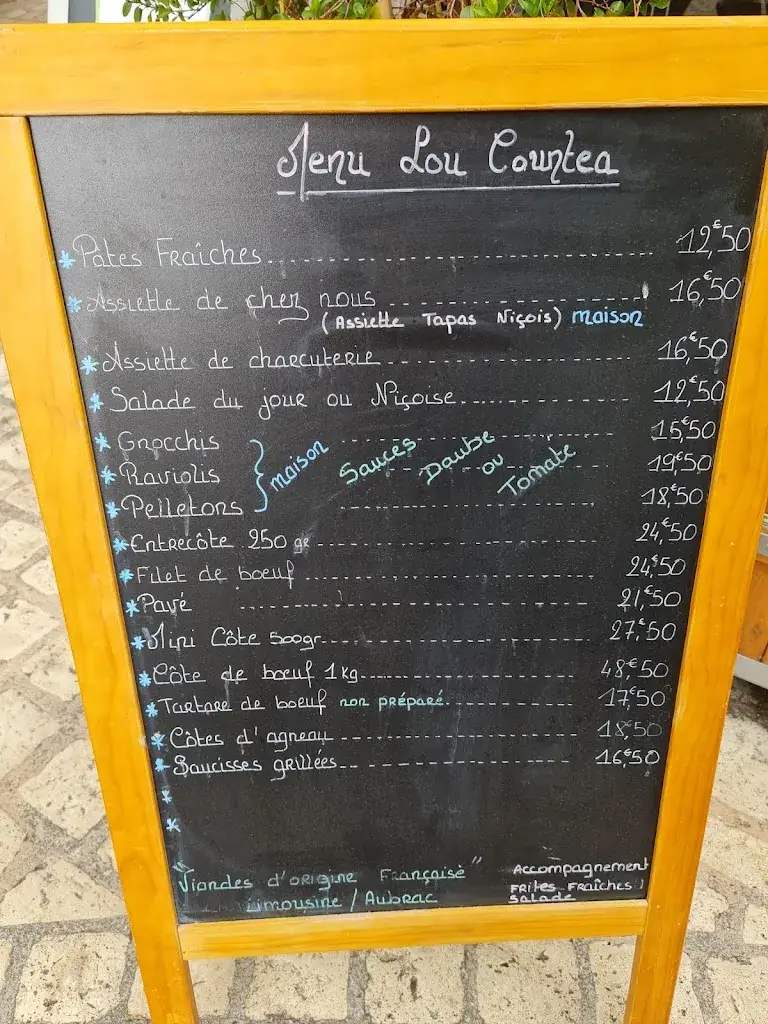 Menu Lou Countea
* Pates Fraîches 12€50
* Assiette de chez nous 16€,50
(Assiette Tapas Niçois) maison
* Assiette de charcuterie 16€,50
* Salade du jour ou Niçoise 12€,50
* Gnocchis 15€,50
* Raviolis } maison Sauces Daube ou Tomate 19€,50
* Pelletons 18€,50
* Entrecôte 250 gr 24€,50
* Filet de boeuf 24€,50
* Pavé 21€,50
* Mini Côte 500gr 27€,50
* Côte de boeuf 1kg 48€,50
* Tartare de boeuf non préparé 17€,50
* Côtes d'agneau 18€,50
* Saucisses grillées 16€,50
*
*
"Viandes d'origine Française"
Limousine / Aubrac
Accompagnement
Frites Fraîches /
Salade